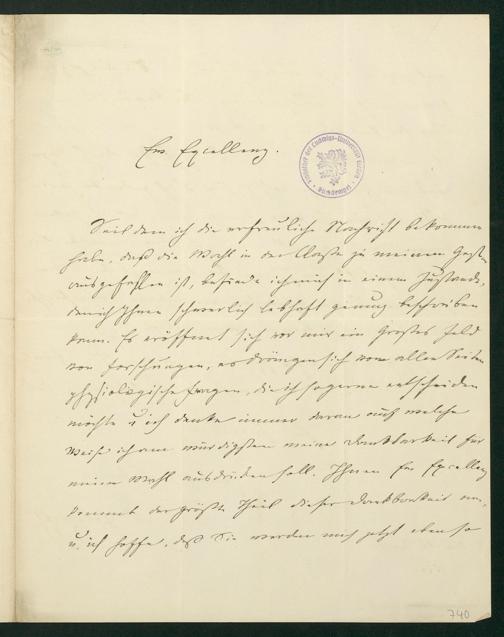 Ew. Excellenz.
Bibliothek der Ludwigs-Universität Giessen
Seit dem ich die erfreuliche Nachricht bekommen
habe, daß die Wahl in der Classe zu meinen Gunsten
ausgefallen ist, befinde ich mich in einem Zustande,
den ich Ihnen schwerlich lebhaft genug beschreiben
kann. Es eröffnet sich vor mir ein großes Feld
von Forschungen, es drängen sich von allen Seiten
physiologische Fragen, die ich so gerne entscheiden
möchte u ich denke immer daran auf welche
Weise ich am würdigsten meine Dankbarkeit für
meine Wahl ausdrücken soll. Ihnen Ew Excellenz
kommt der größte Theil dieser Dankbarkeit
u. ich hoffe, daß Sie werden mich jetzt eben so
740